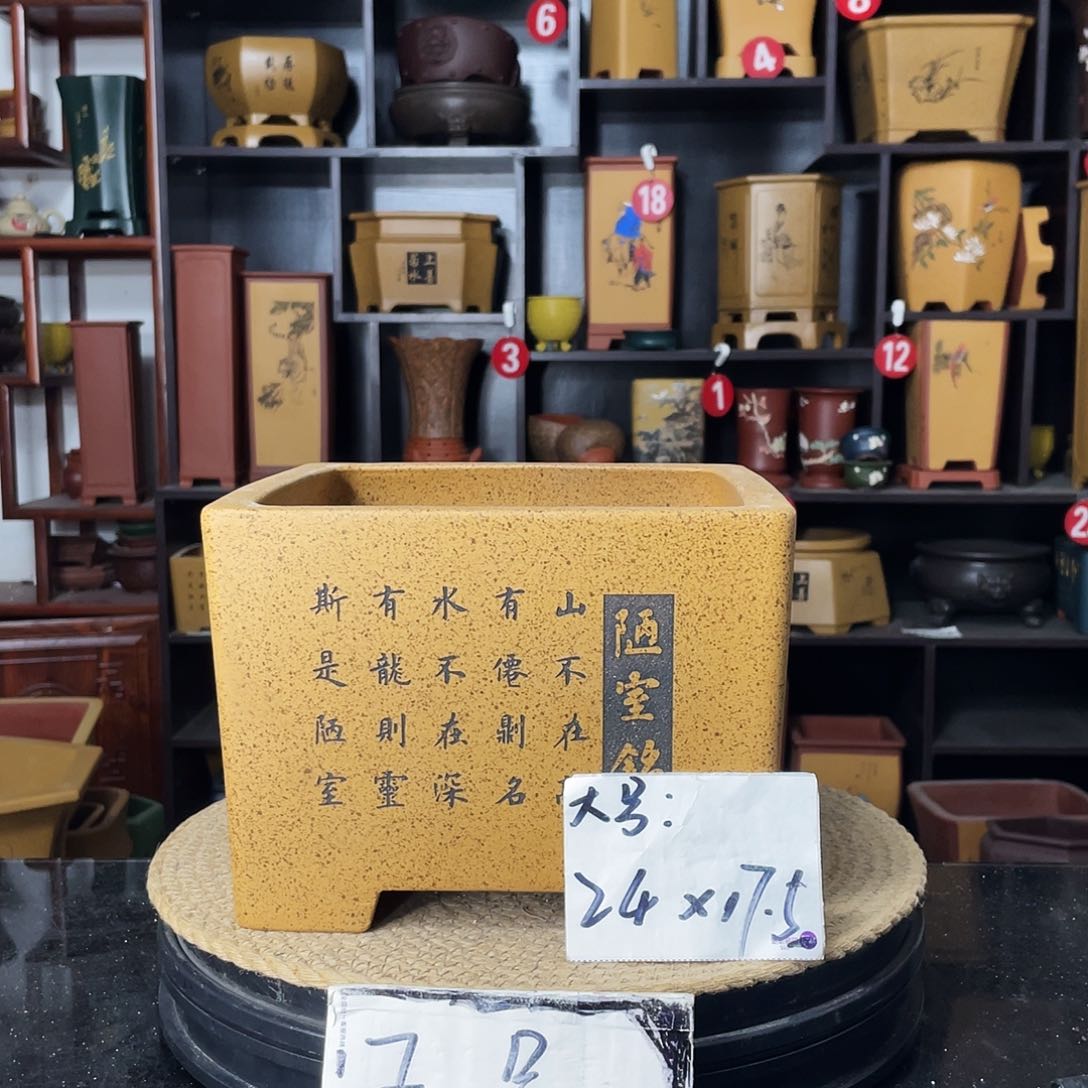 6
4
8
18
上善
若水
3
1
12
2
陋室銘
山不在
有僊則名
水不在深
有龍則靈
斯是陋室
大号:
24×17.5